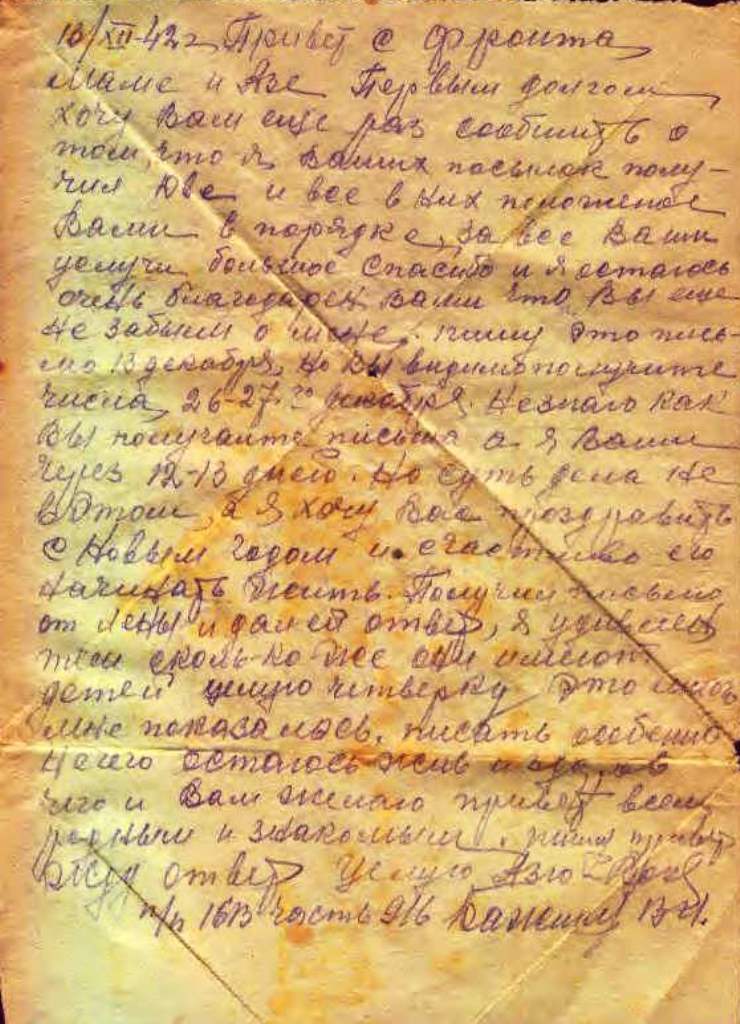 13/XII-42 г. Привет с фронта
Маме и Азе Первым долгом
хочу Вам еще раз сообщить о
том, что я Ваших посылок полу-
чил две и все в них положеное
Вами в порядке, за все Ваши
услуги большое спасибо и я остаюсь
очень благодарен вами что Вы еще
не забыли о мне. пишу это пись-
мо 13 декабря, но Вы видимо получите
числа 26-27го декабря. Незнаю как
Вы получаите письма а я Ваши
через 12-13 дней. Но суть дела не
в этом, а я хочу Вас проздравить
с Новым годом и счастливо его
начинать жить. Получил письмо
от Лены и дал ей ответ, я удивлен
тем сколь-ко же они имеют
детей целую четверку это
мне показалось. писать особенно
нечего остаюсь жив и здоров
чего и Вам желаю привет всем
родным и знакомым.
Жду ответ Целую Азю
п/п 1613 часть 916 В.И.